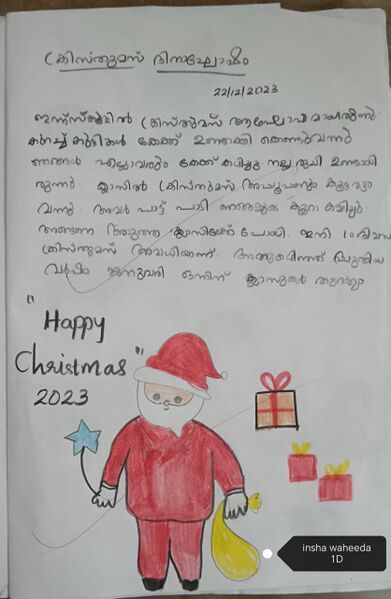 ക്രിസ്തുമസ് ദിനാഘോഷം
22/12/2023
ഇന്ന് സ്കൂളിൽ ക്രിസ്തുമസ് ആഘോഷമായിരുന്നു.
കുറച്ച് കുട്ടികൾ കേക്ക് ഉണ്ടാക്കി കൊണ്ടുവന്നു
ഞങ്ങൾ എല്ലാവരും കേക്ക് കഴിച്ചു നല്ല രുചി ഉണ്ടായി
രുന്നു. ക്ലാസിൽ ക്രിസ്തുമസ് അപ്പൂപ്പനും കൂട്ടരും
വന്നു. അവർ പാട്ട് പാടി ഞങ്ങളും കൂടെ കളിച്ചു.
അങ്ങനെ അടുത്ത ക്ലാസിലേക്ക് പോയി. ഇനി 10 ദിവസം
ക്രിസ്തുമസ് അവധിയാണ്. അതുകഴിഞ്ഞ് പുതിയ
വർഷം ജനുവരി ഒന്നിന് ക്ലാസുകൾ തുറക്കും
"Happy
Christmas"
2023
insha waheeda
1D